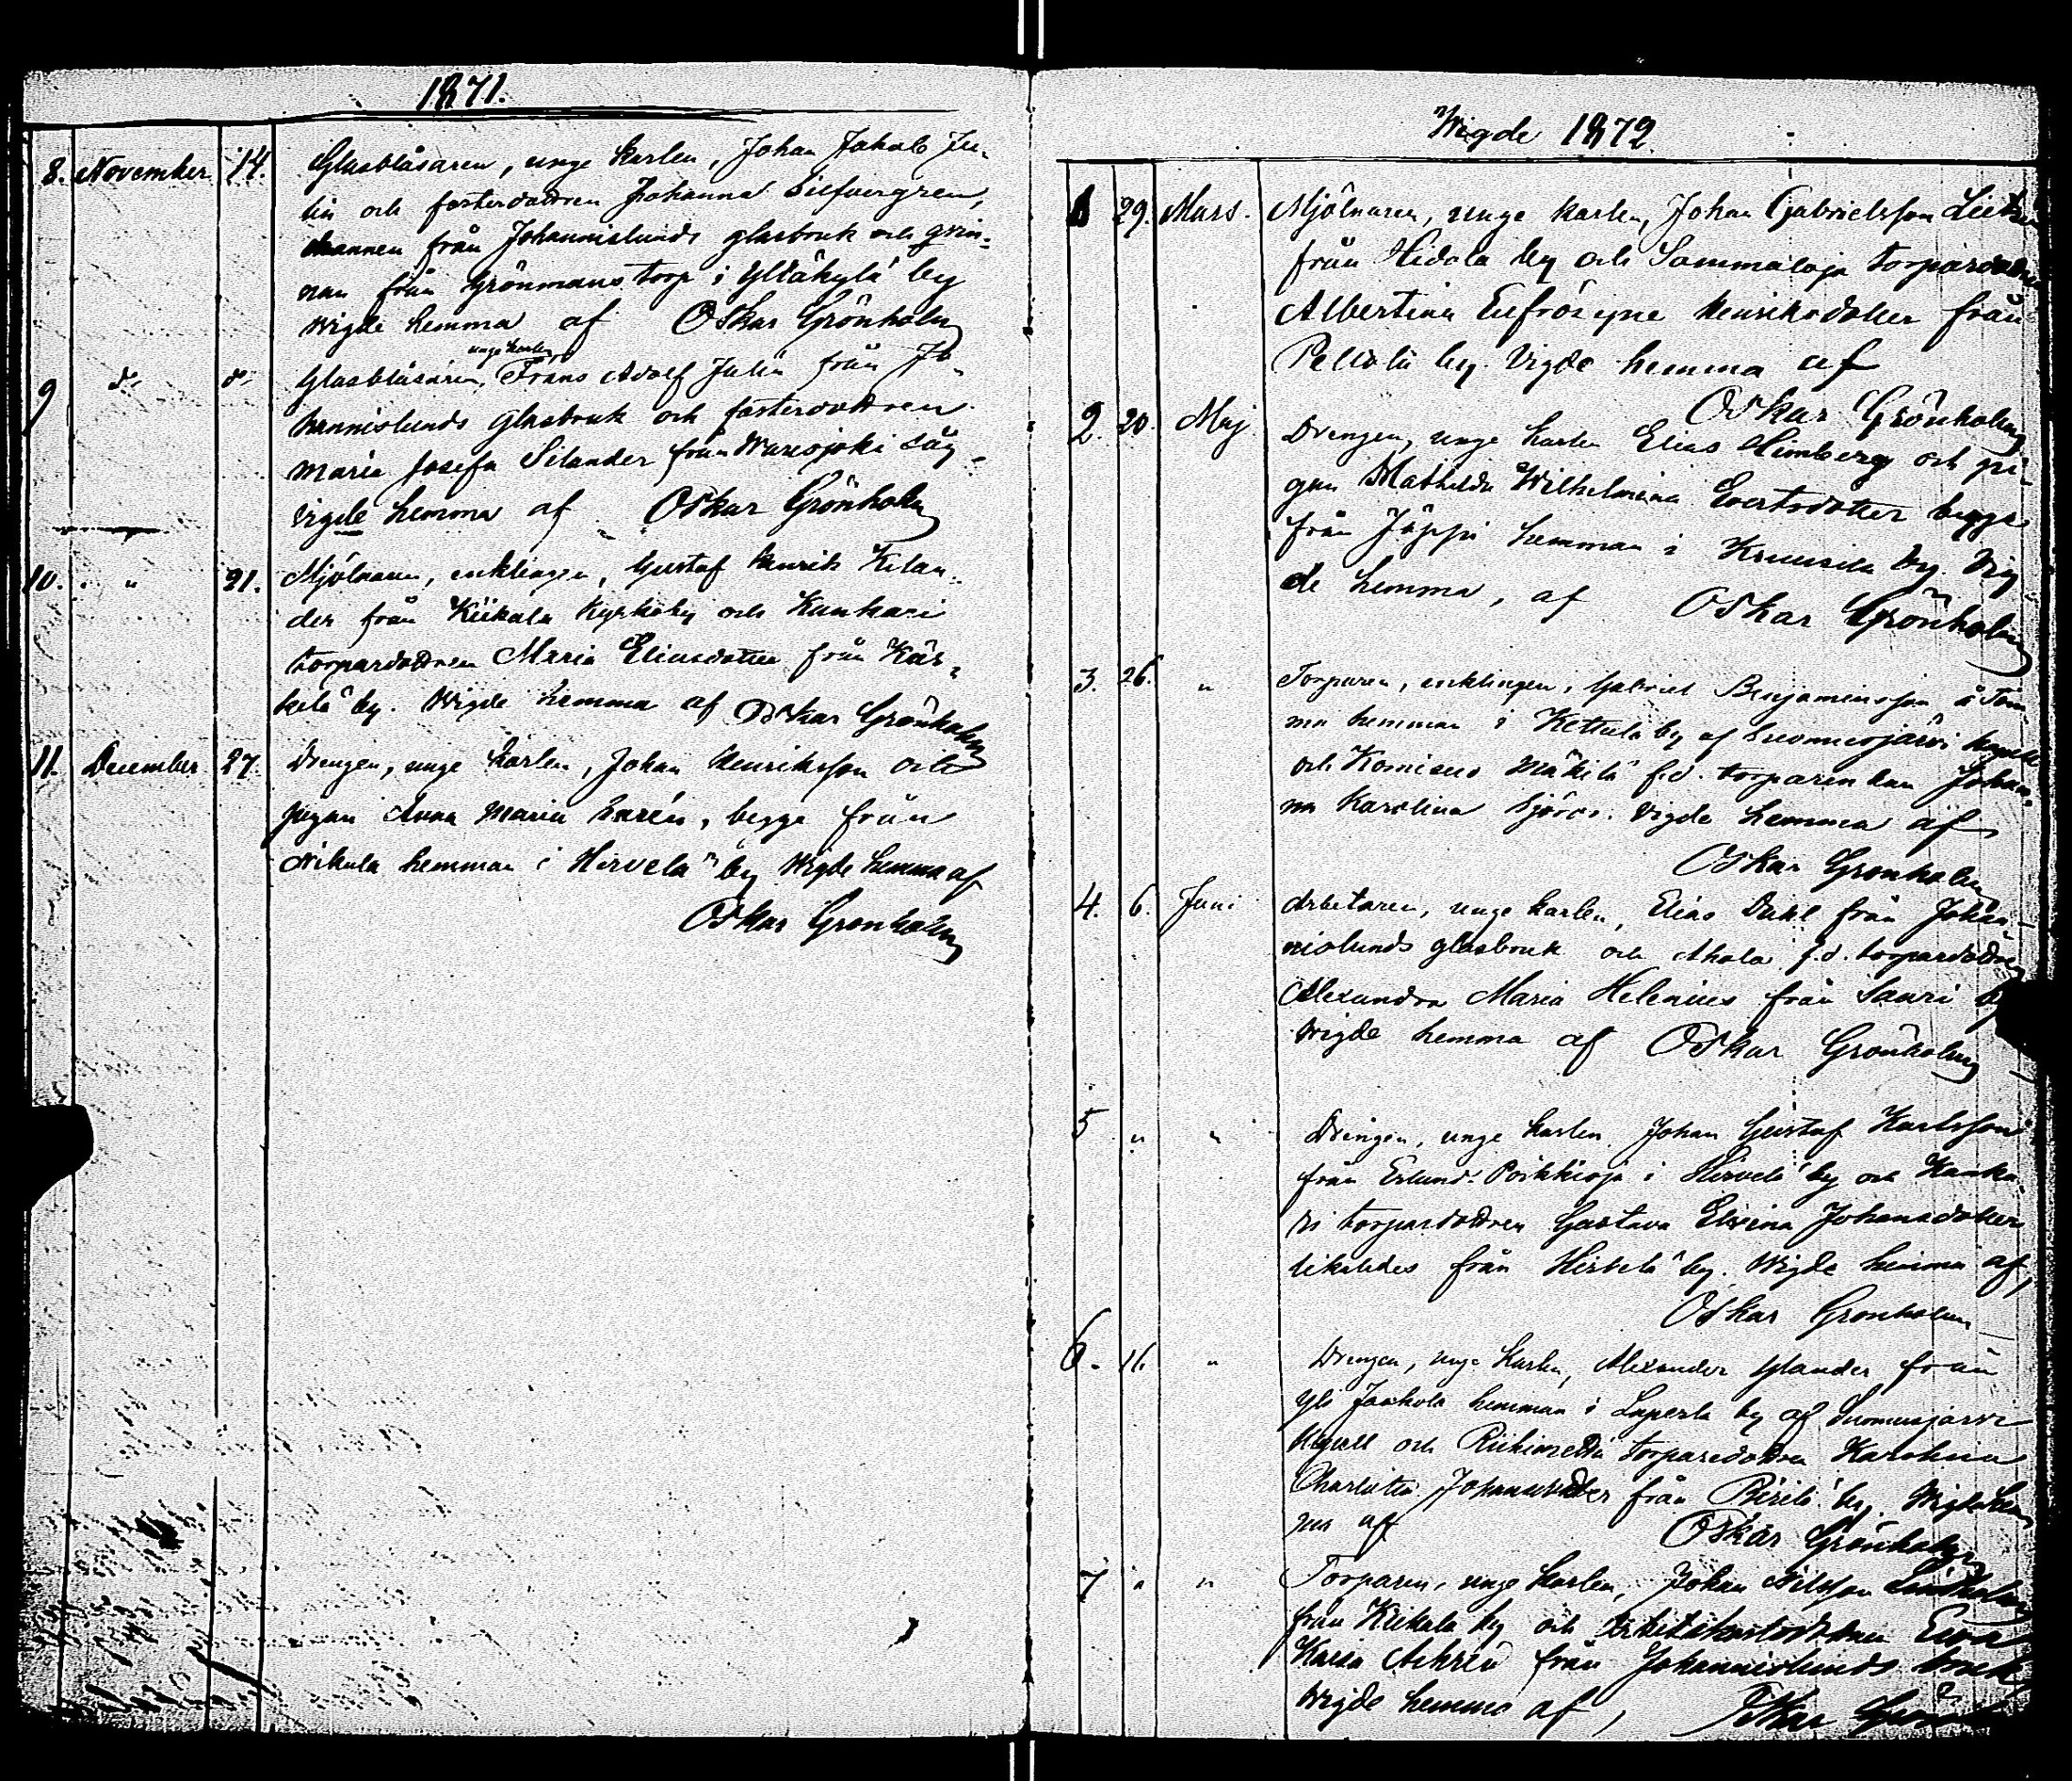 1871.
8. November 14. Glasblåsaren, unge karlen, Johan Jakob Ju-
lin och fosterdottren Johanna Silfvergren,
mannen från Johannislunds glasbruk och qvin-
nan från Grönmans torp i Yltäkylä by
Wigde hemma af Oskar Grönholm
unge karlen
9 do do Glasblåsaren, Frans Adolf Julin från Jo-
hannislunds glasbruk och fosterdottren
Maria Josefa Silander från Waresjoki såg-
vigde hemma af Oskar Grönholm
10. " 21. Mjölnaren, enklingen, Gustaf Henrik Kilan-
der från Kiikala Kyrkoby och Kankari
torpardottren Maria Eliasdotter från Käs-
kelä by. Wigde hemma af Oskar Grönholm
11. December 27. Drengen, unge karlen, Johan Henriksson och
pigan Anna Maria Larén, begge från
Nikula hemman i Hirvelä by Wigde hemma af
Oskar Grönholm
Wigde 1872
1 29. Mars. Mjölnaren, unge karlen, Johan Gabrielsson
från Hidola by och Sammaloja torpardottren
Albertina Eufrosyne Henriksdotter från
Peltola by. Vigde hemma af
Oskar Grönholm
2. 20. Maj Drengen, unge karlen Elias Himberg och pi-
gan Mathilda Wilhelmina Evertsdotter begge
från Jäppi hemman i Kruusila by. Vig-
de hemma, af Oskar Grönholm
3. 26. " Torparen, enklingen, Gabriel Benjaminsson å
ma hemman i Kettula by af Suomusjärvi kapell
och Komisuo Mäkilä f.d. torparenkan Johan-
na Karolina Sjöros. Vigde hemma af
Oskar Grönholm
4. 6. Juni Arbetaren, unge karlen, Elias Dahl från Johan-
nislunds glasbruk och Ahola f.d. torpardottren
Alexandra Maria Helenius från Sauri
Wigde hemma af Oskar Grönholm
5 " " Drengen, unge karlen Johan Gustaf Karlsson
från Erlund Poikkioja i Hirvelä by och Kanka-
ri torpardottren Gustava Elvina Johansdotter
likaledes från Hirvelä by. Wigde hemma af,
Oskar Grönholm
6. 11. " Drengen, unge karlen, Alexander Ylander från
Yli Jaakola hemman i Laperla by af Suomusjärvi
kapell och torparedottren Karolina
Charlotta Johansdotter från by Wigde hem-
ma af Oskar Grönholm
7 " " Torparen, unge karlen, Johan Nilsson Lindholm
från Kiikala by och Arbetskarlsdottren Eva
Kaisa Achrén från Johannislunds bruk
Wigde hemma af, Oskar